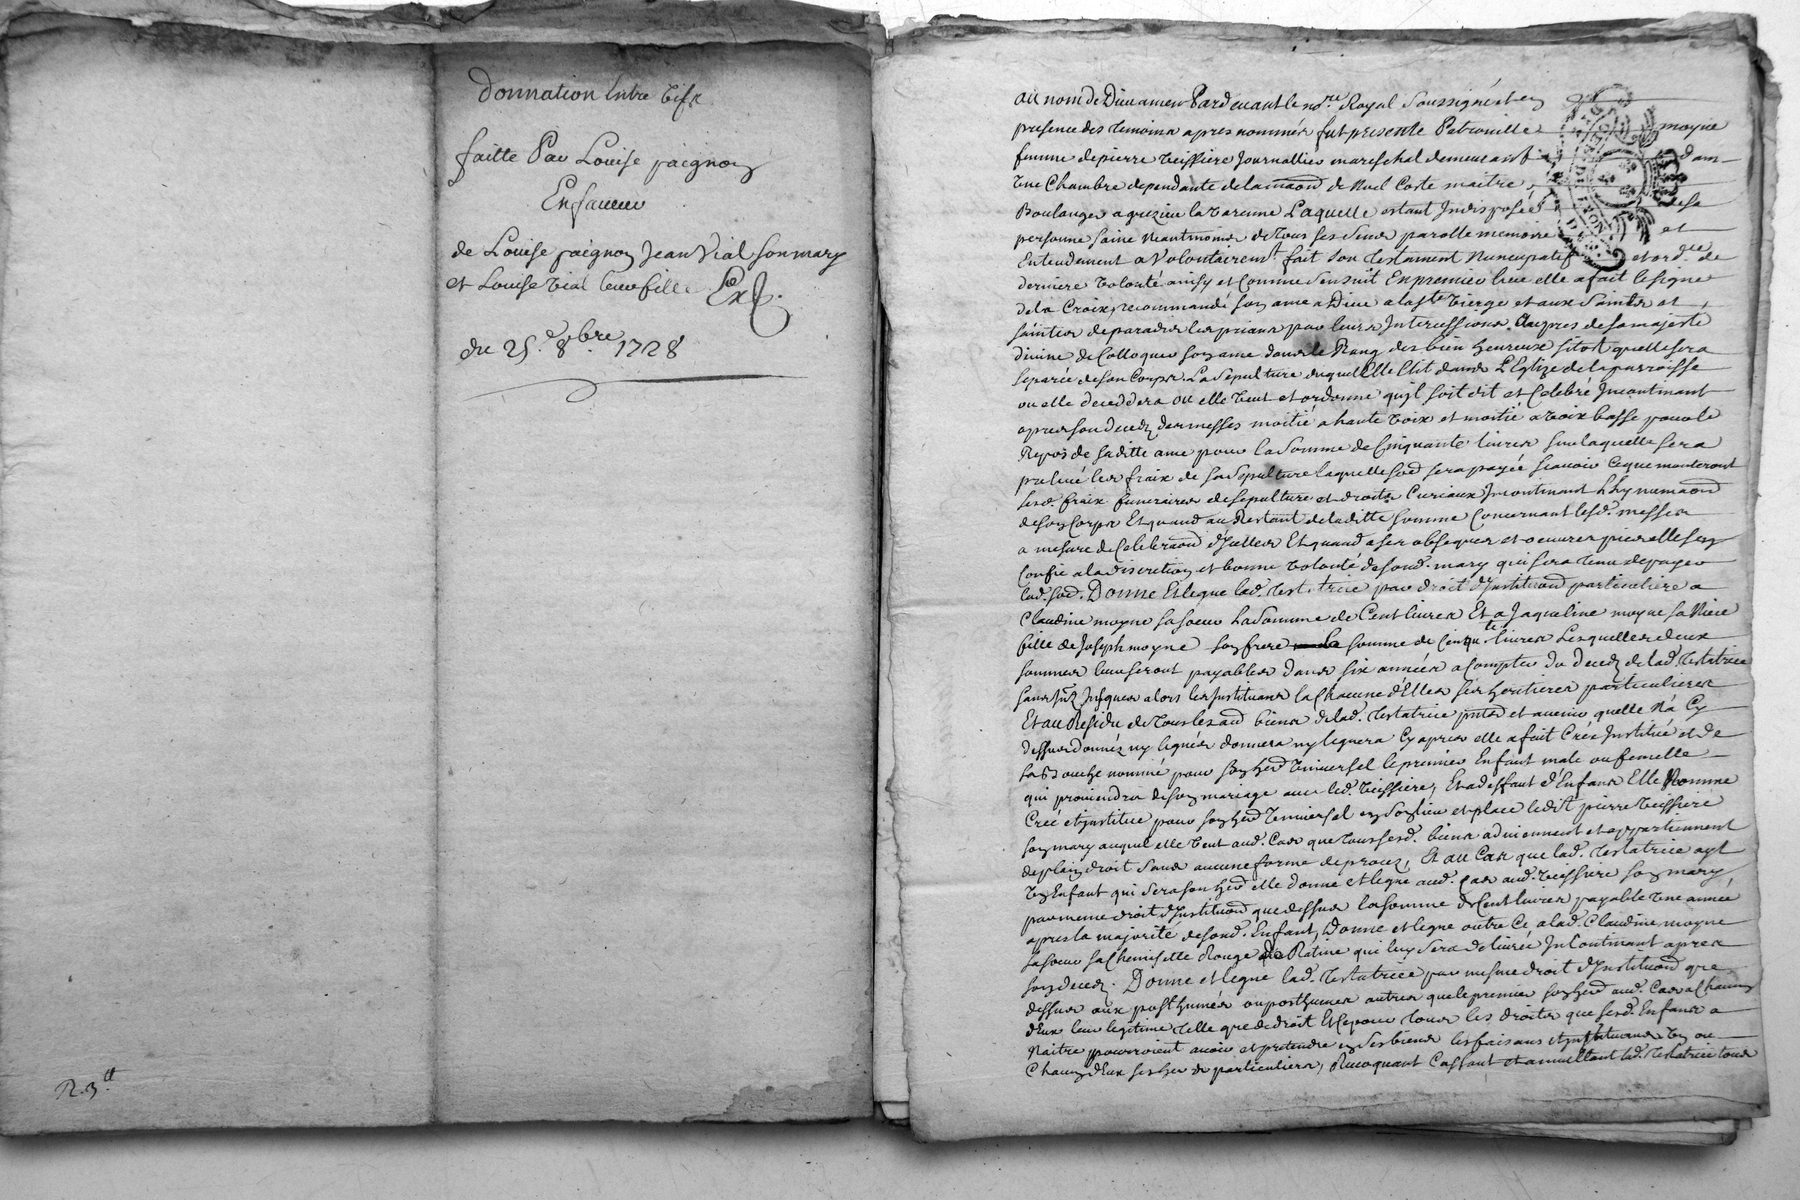 Donnation Entre vifs
faitte Par Louise paignon
En faveur
de Louise paignon Jean Vial son mary
et Louise Vial leur fille Exp.
du 25.e 8bre. 1728
R. 3 ll
au nom de Dieu amen Pardevant le no.re Royal soussigné et en
presence des temoins apres nommés fut presente Petronille moyne
femme de pierre teissiere Journallier mareschal demeurant dans
une Chambre dependante de la maon de Noel Coste maitre
Boulanger a la varenne Laquelle estant Indisposée de sa
personne saine Neantmoins de tous ses sens parolle memoire et
Entendement a Volontairem.t fait son testament Nuncupatif et ord.ce de
derniere volonté ainsy et Comme sensuit En premier lieu elle a fait le signe
de la Croix, recommandé son ame a Dieu a la s.te Vierge et aux Saints et
saintes de paradis les priant par leurs Intercessions aupres de sa majesté
divine de Colloquer son ame dans le Rang des bien heureux sitot quelle sera
separée de son Corps. La sepulture duquel Elle Elit dans L'Eglize de la parroisse
ou elle deceddera ou elle veut et ordonne quil soit dit et Celebré Incontinant
apres son decez des messes moitié a haute voix et moitié a voix basse pour le
Repos de saditte ame pour la somme de Cinquante livres sur laquelle sera
prelevé les fraix de sa sepulture laquelle sera payée scavoir Ce que monteront
lesd. fraix funeraires de sepulture et droits Curiaux Incontinant L'hynumaon
de son Corps Et quand au Restant de laditte somme Concernant lesd. messes
a mesure de Celebraon d'Icelles Et quand a ses obseques et oeuvres pies elle sen
Confie a la discretion et bonne volonté de sond. mary qui sera tenu de payer
lad. so.e. Donne Et legue lad. testatrice par droit d'Instituon particuliere a
Claudine moyne sa soeur La somme de Cent livres Et a Jaqueline moyne sa Niece
fille de Joseph moyne son frere somme de Cinqu.te livres Lesquelles deux
sommes leur seront payables dans six années a Compter du decez de lad. testatrice
sans Jnt. Jusques alors les Instituant la Chacune d'Elles ses heritieres particulieres
Et au Residu de tous les biens de lad. testatrice pnts et avenir quelle Na Cy
dessus donnés ny legués donnera ny leguera Cy apres elle a fait Créé Institué et de
sa Bouche nommé pour son her. Universel le premier Enfant male ou femelle
qui proviendra de son mariage avec led. teissiere, Et a deffaut d'Enfans Elle Nomme
Créé et institue pour son her. Universel en son lieu et place ledit pierre teissiere
son mary auquel elle veut aud. Cas que tous sesd. biens adviennent et appartiennent
de plain droit sans aucune forme de procez, Et au Cas que lad. testatrice ayt
un Enfant qui sera son her. elle donne et legue aud. Cas aud. teissiere son mary
par meme droit d'Instituon que dessus la somme de Cent livres payable une année
apres la majorité de sond. Enfant, Donne et legue outre Ce a lad. Claudine moyne
sa soeur sa Chemisette Rouge de Ratine qui luy sera delivrée Incontinant apres
son decez. Donne et legue lad. testatrice par mesme droit d'Instituon que
dessus aux posthumes ou posthumes autres que le premier son her. aud. Cas a Chacun
d'Eux leur legitime telle que de droit Et Ce pour tous les droits que sesd. Enfans a
Naitre pourroient avoir et pretendre en ses biens les faisant et instituant Un ou
Chacun d'Eux ses her. particuliers, Revoquant Cassant et annullant lad. testatrice tous